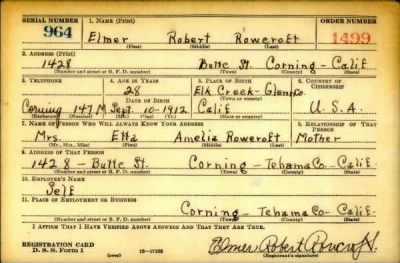 SERIAL NUMBER 1. NAME (Print) ORDER NUMBER
964 Elmer Robert Rowcroft 1499
(First) (Middle) (Last)
2. ADDRESS (Print)
1428 Butte St. Corning - Calif
(Number and street or R. F. D. number) (Town) (County) (State)
3. TELEPHONE 4. AGE IN YEARS 5. PLACE OF BIRTH 6. COUNTRY OF CITIZENSHIP
28 Elk Creek - Glenn Co
DATE OF BIRTH (Town or county)
Corning 147 M Sept. 10 - 1912 Calif U.S.A.
(Exchange) (Number) (Mo.) (Day) (Yr.) (State or country)
7. NAME OF PERSON WHO WILL ALWAYS KNOW YOUR ADDRESS 8. RELATIONSHIP OF THAT PERSON
Mrs. Etta Amelia Rowcroft Mother
(Mr., Mrs., Miss) (First) (Middle) (Last)
9. ADDRESS OF THAT PERSON
1428 - Butte St. Corning - Tehama Co - Calif.
(Number and street or R. F. D. number) (Town) (County) (State)
10. EMPLOYER'S NAME
Self
11. PLACE OF EMPLOYMENT OR BUSINESS
Corning - Tehama Co - Calif.
(Number and street or R. F. D. number) (Town) (County) (State)
I AFFIRM THAT I HAVE VERIFIED ABOVE ANSWERS AND THAT THEY ARE TRUE.
REGISTRATION CARD
D. S. S. Form 1 (over) Elmer Robert Rowcroft
(Registrant's signature)